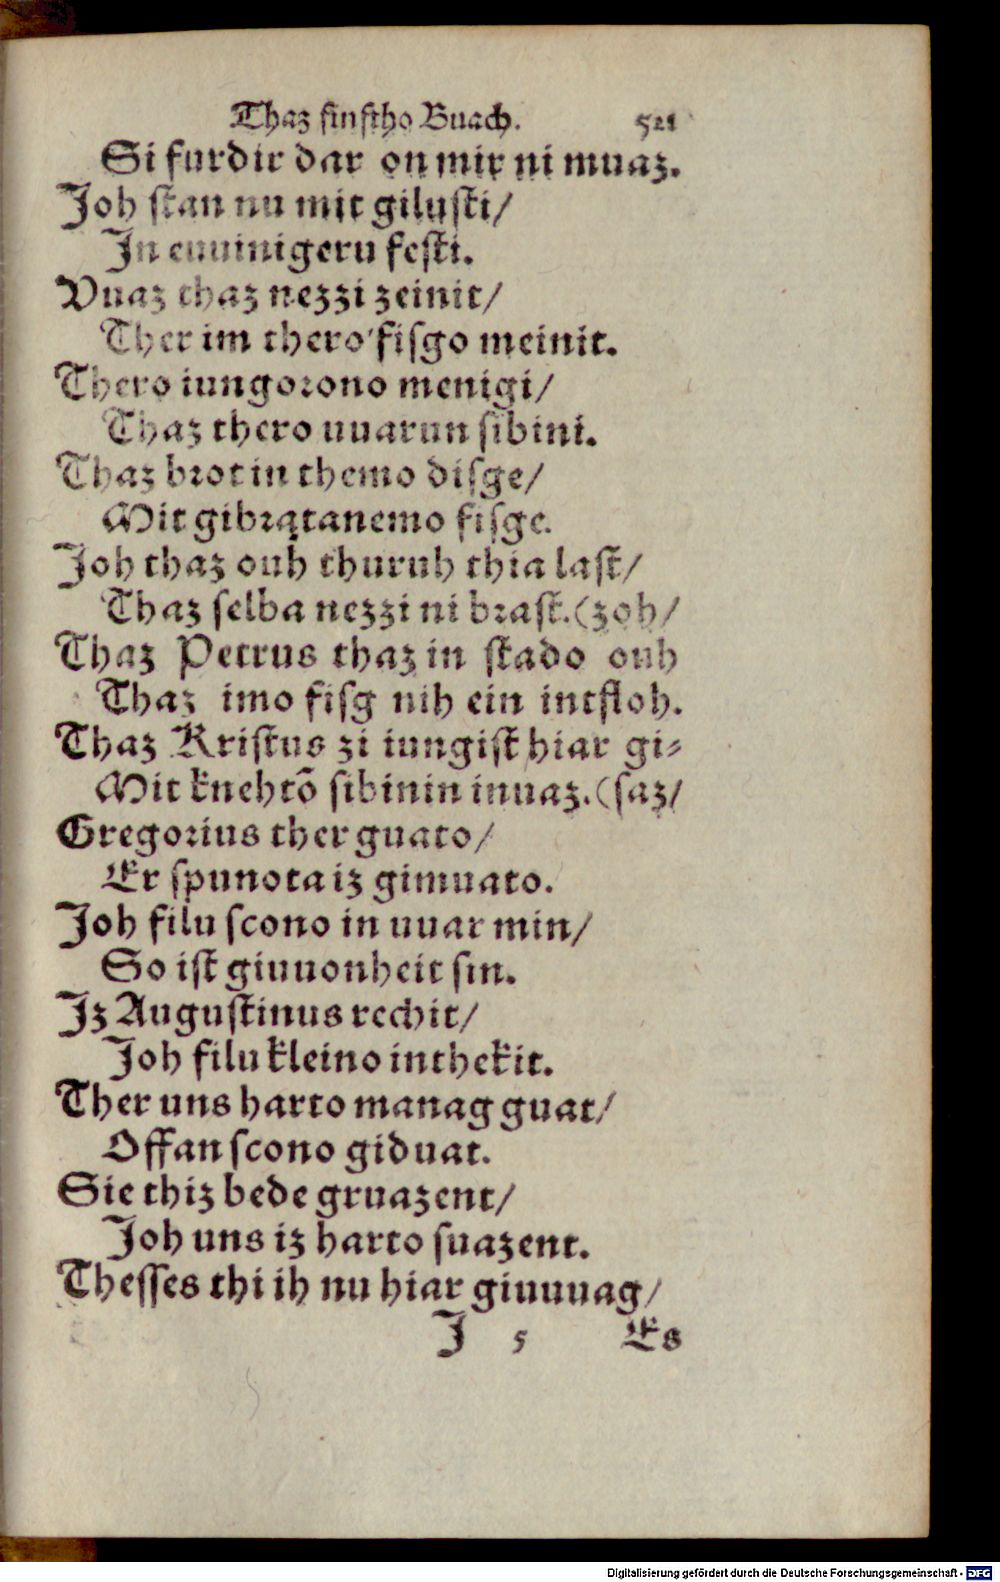 Thaz finftho Buach. 521
Si furdir dar on mir ni muaz.
Joh stan nu mit gilusti/
In euuinigeru festi.
Vuaz thaz nezzi zeinit/
Ther im thero fisgo meinit.
Thero iungorono menigi/
Thaz thero uuarun sibini.
Thaz brot in themo disge/
Mit gibratanemo fisge.
Joh thaz ouh thuruh thia last/
Thaz selba nezzi ni brast. (zoh/
Thaz Petrus thaz in stado ouh
Thaz imo fisg nih ein intfloh.
Thaz Kristus zi iungist hiar gi⸗
Mit knehtō sibinin inuaz. (saz/
Gregorius ther guato/
Er spunota iz gimuato.
Joh filu scono in uuar min/
So ist giuuonheit sin.
Iz Augustinus rechit/
Joh filu kleino inthekit.
Ther uns harto manag guat/
Offan scono giduat.
Sie thiz bede gruazent/
Joh uns iz harto suazent.
Thesses thi ih nu hiar giuuuag/
J 5 Es
Digitalisierung gefördert durch die Deutsche Forschungsgemeinschaft - DFG